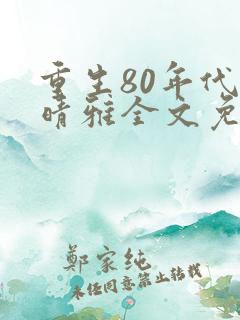 重生80年代
晴雅全文免
鄭家纯
未经同意禁止转载